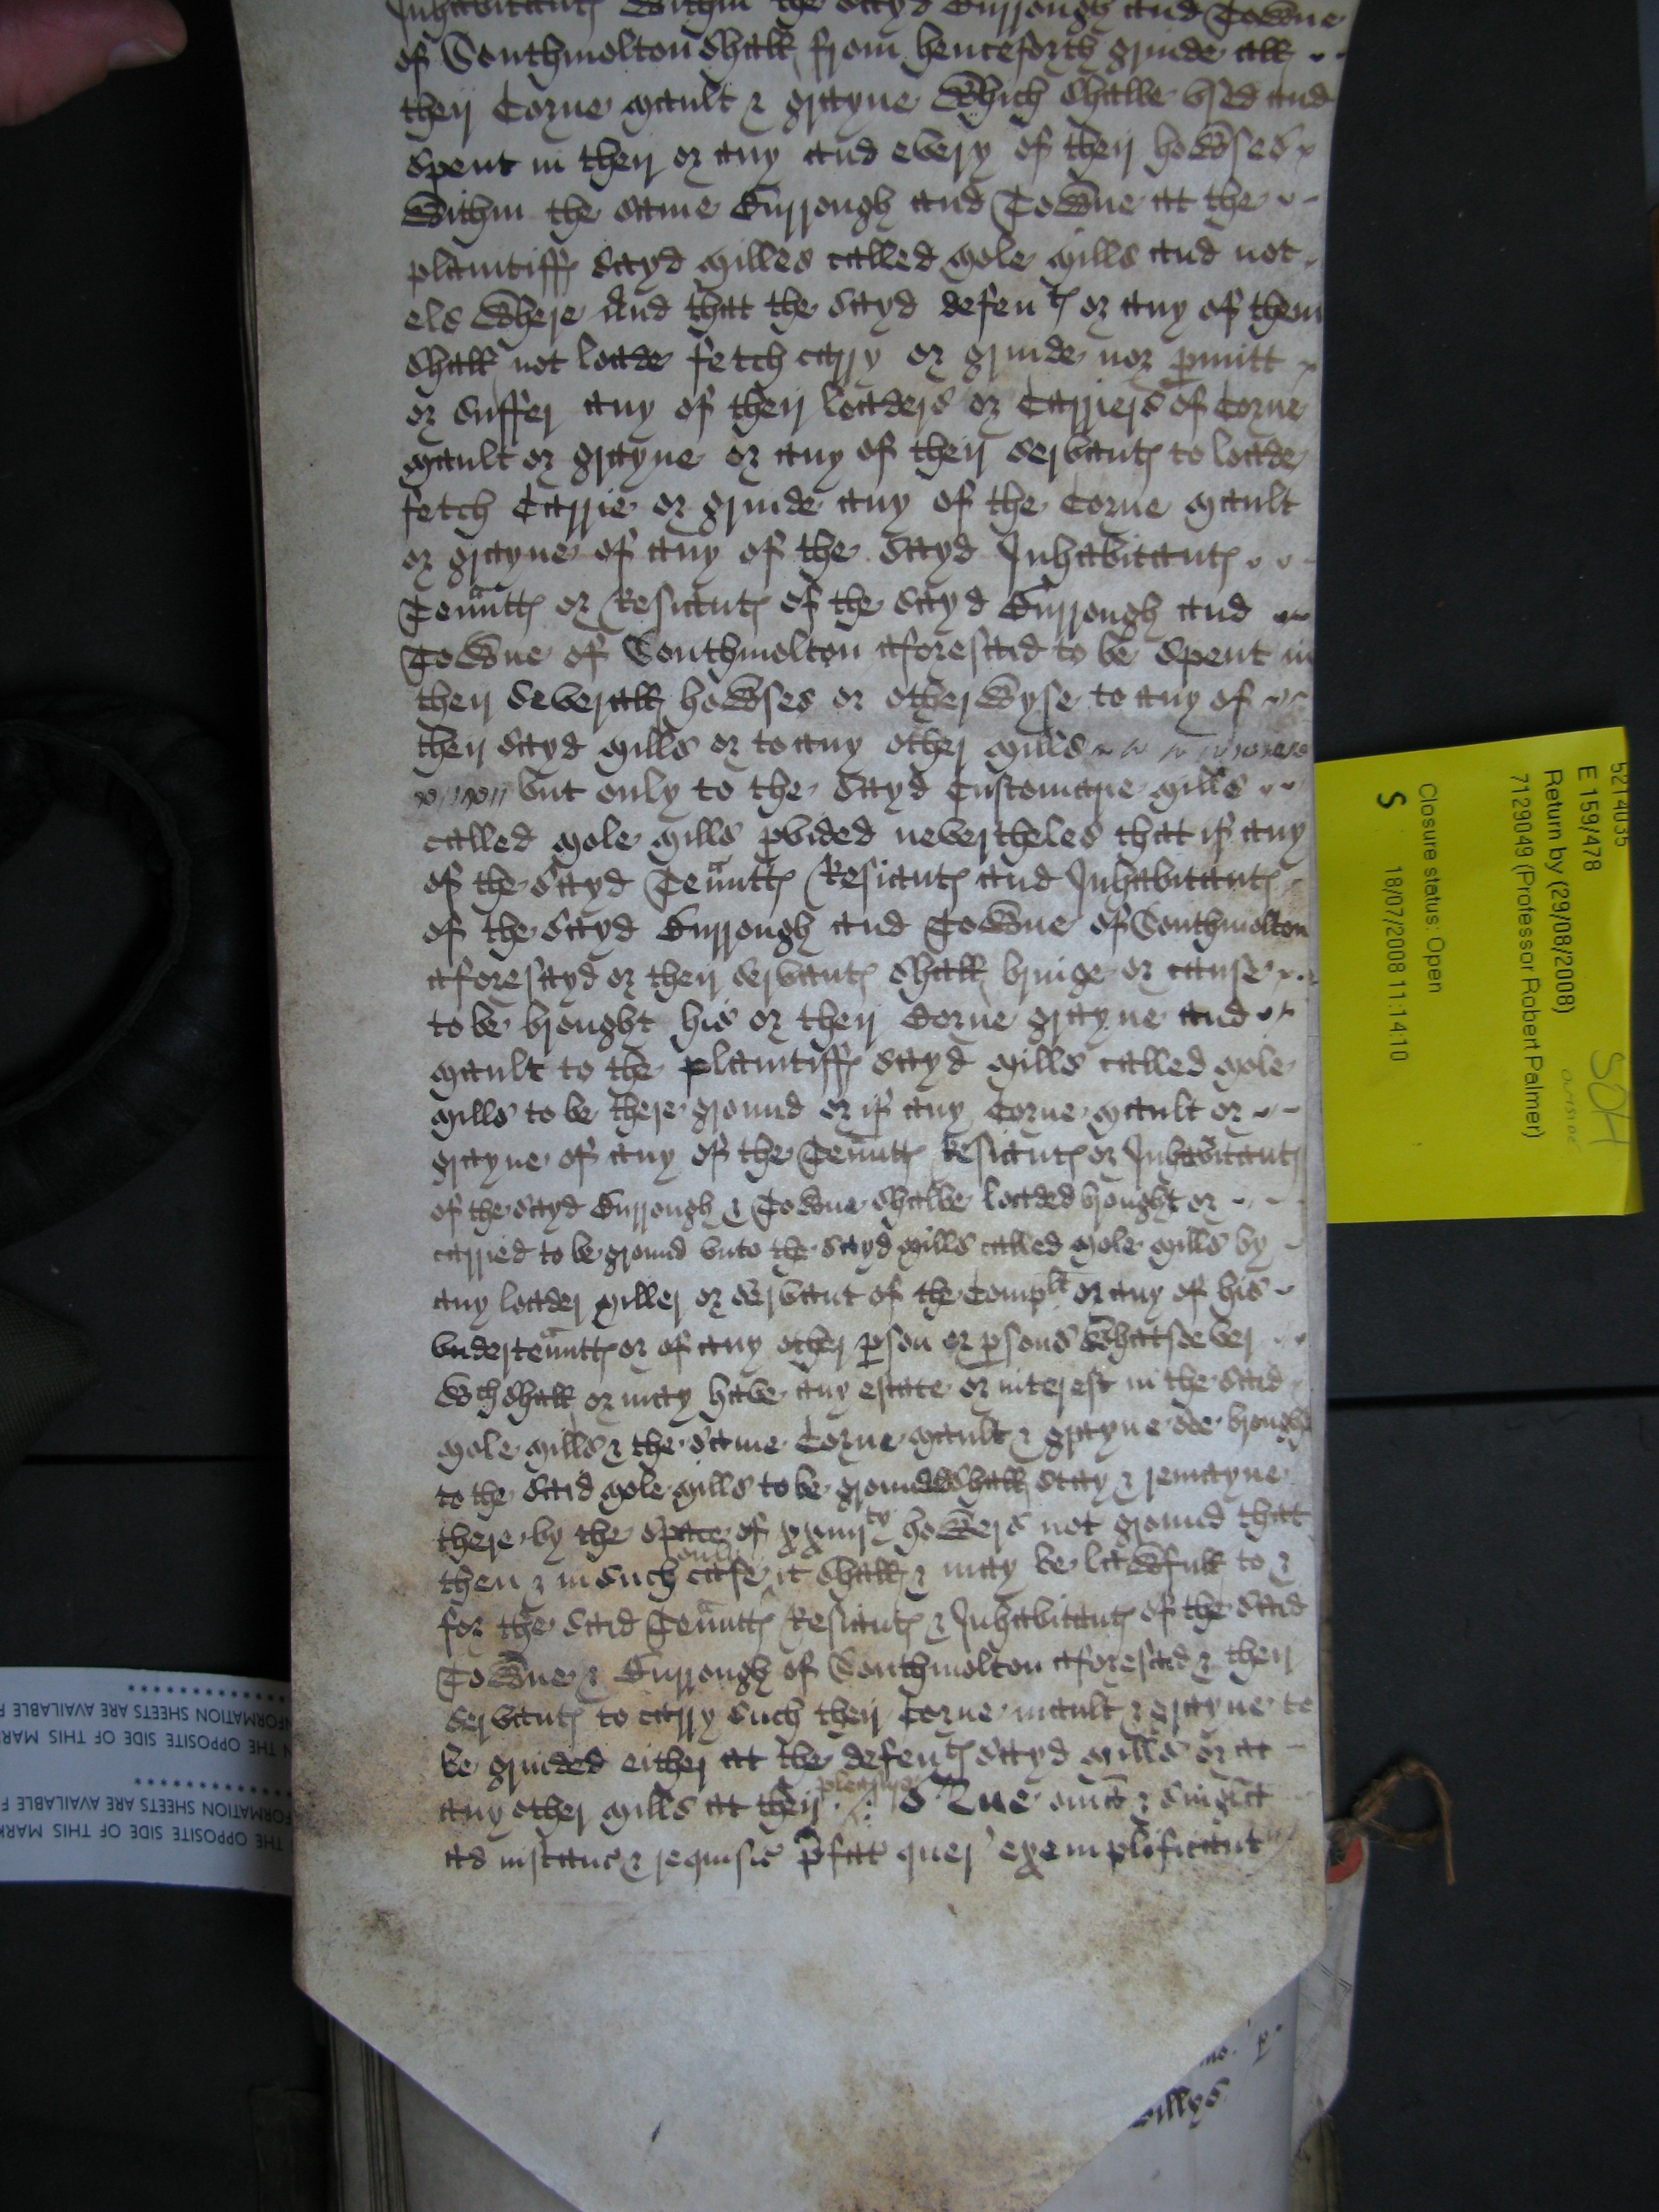 Inhabitants within the sayd Burrough and Towne
of Southmolton shall from henceforth grinde all
their Corne mault & grayne which shalbe vsed and
spent in their or any and every of their howses
within the same Burrough and Towne at the
plaintiffs sayd milles called mole mills and not
els where And that the sayd defents or any of them
shall not loade fetch carry or grinde nor pmitt
or suffer any of their loaders or Carriers of Corne
mault or grayne or any of their servants to loade
fetch Carrie or grinde any of the Corne mault
or grayne of any of the sayd Inhabitants
Tennts or Resiants of the sayd Burrough and
Towne of Southmolton aforesaid to be spent in
their severall howses or otherwyse to any of
their sayd mills or to any other mills
but only to the sayd Customarie mills
called mole mills pvided nevertheles that if any
of the sayd Tennts Resiants and Inhabitants
of the sayd Burrough and Towne of Southmolton
aforesayd or their servants shall bringe or cause
to be brought his or their Corne grayne and
mault to the plaintiffs sayd mills called mole
mills to be there ground or if any Corne mault or
grayne of any of the Tennts Resiants or Inhabitants
of the sayd Burrough & Towne shalbe loaded brought or
carried to be ground vnto the sayd mills called mole mills by
any loader miller or servant of the Complt or any of his
vndertennts or of any other pson or psons whatsoever
wch shall or may have any estate or interest in the said
mole mills & the same Corne mault & grayne soe brought
to the said mole mills to be grounded shall stay & remayne
there by the space of xxiiijty howers not ground that
then & in such case only it shall & may be lawfull to &
for the said Tennts Resiants & Inhabitants of the said
Towne & Burrough of Southmolton aforesaid & their
servants to carry such their Corne mault & grayne to
be grinded either at the defents sayd mills or at
any other mills at their pleasures Que omia & singula
ad instanc & requisic pfat quer exemplificant
illys
5214035
E 159/478
Return by (29/08/2008)
7129049 (Professor Robert Palmer)
Closure status: Open
S 18/07/2008 11:14:10
SOH
THE OPPOSITE SIDE OF THIS MARK
FORMATION SHEETS ARE AVAILABLE F
N THE OPPOSITE SIDE OF THIS MARK
NFORMATION SHEETS ARE AVAILABLE F